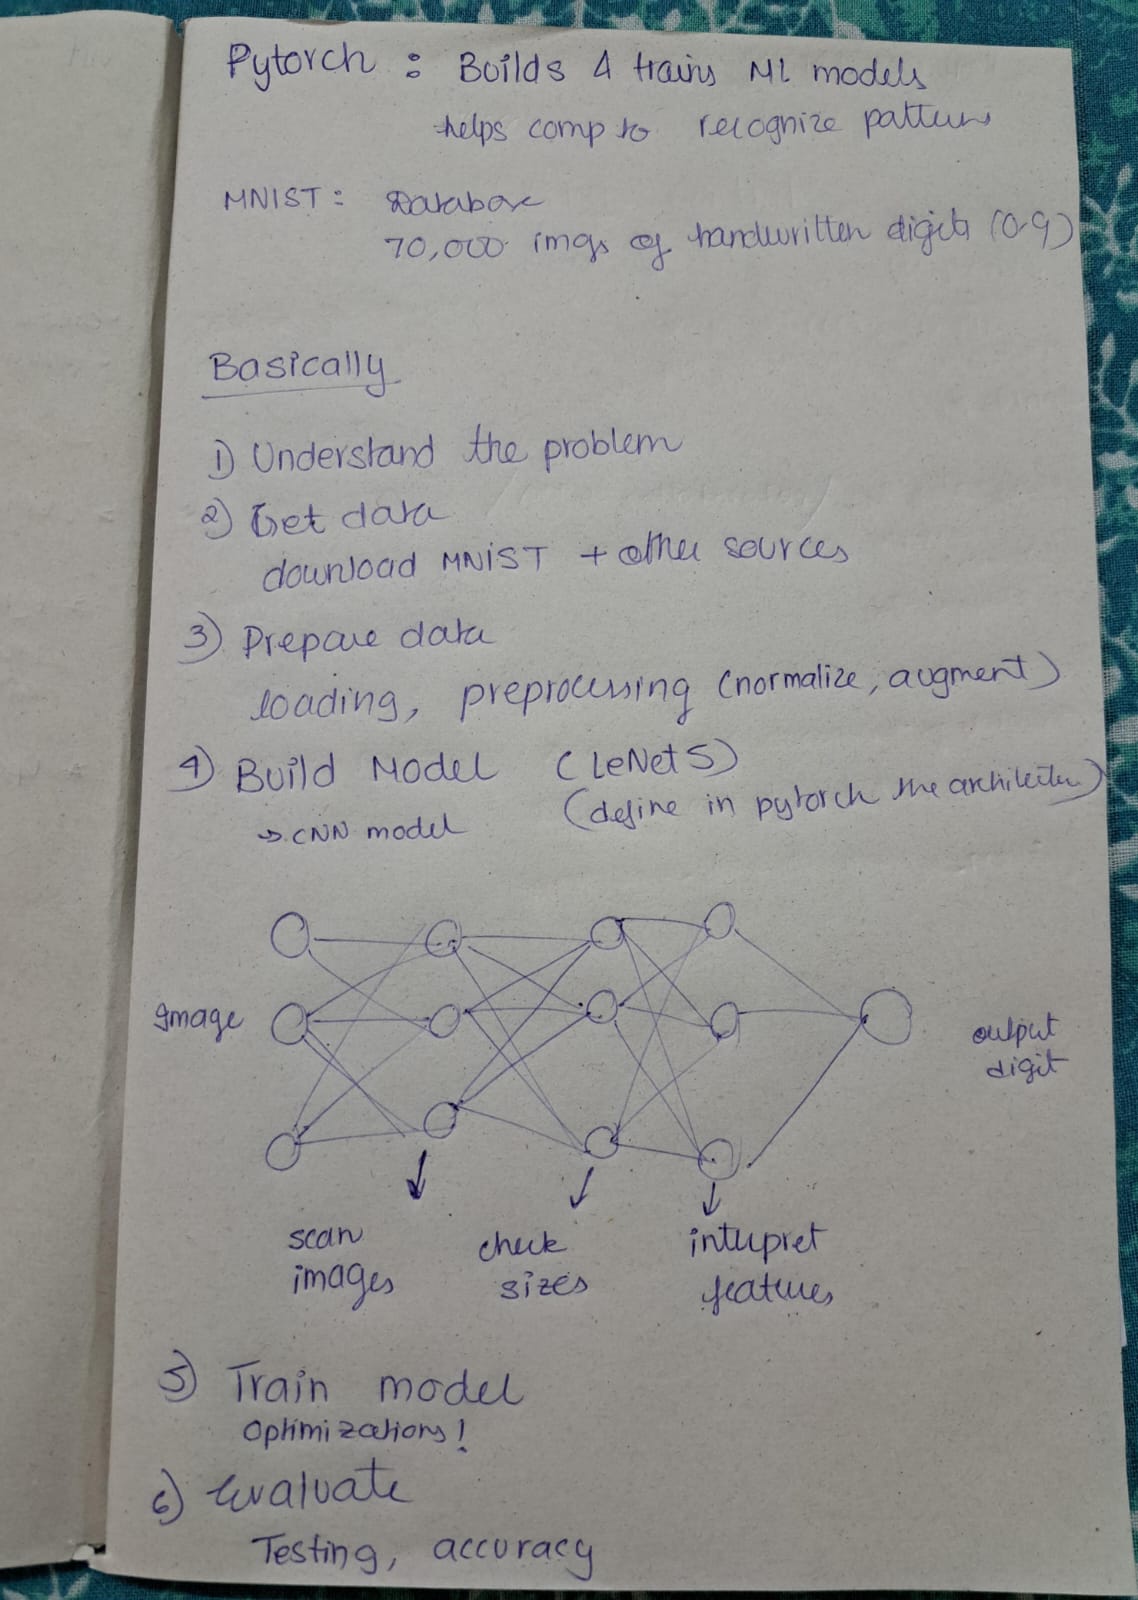 Pytorch : Builds & trains ML models
helps comp to recognize patterns
MNIST : Database
70,000 imgs of handwritten digits (0-9)
Basically
1) Understand the problem
2) Get data
download MNIST + other sources
3) Prepare data
loading, preprocessing (normalize, augment)
4) Build Model (LeNet5)
(define in pytorch the architectur)
→ CNN model
Image
output
digit
scan
images
check
sizes
interpret
features
5) Train model
Optimizations!
6) Evaluate
Testing, accuracy